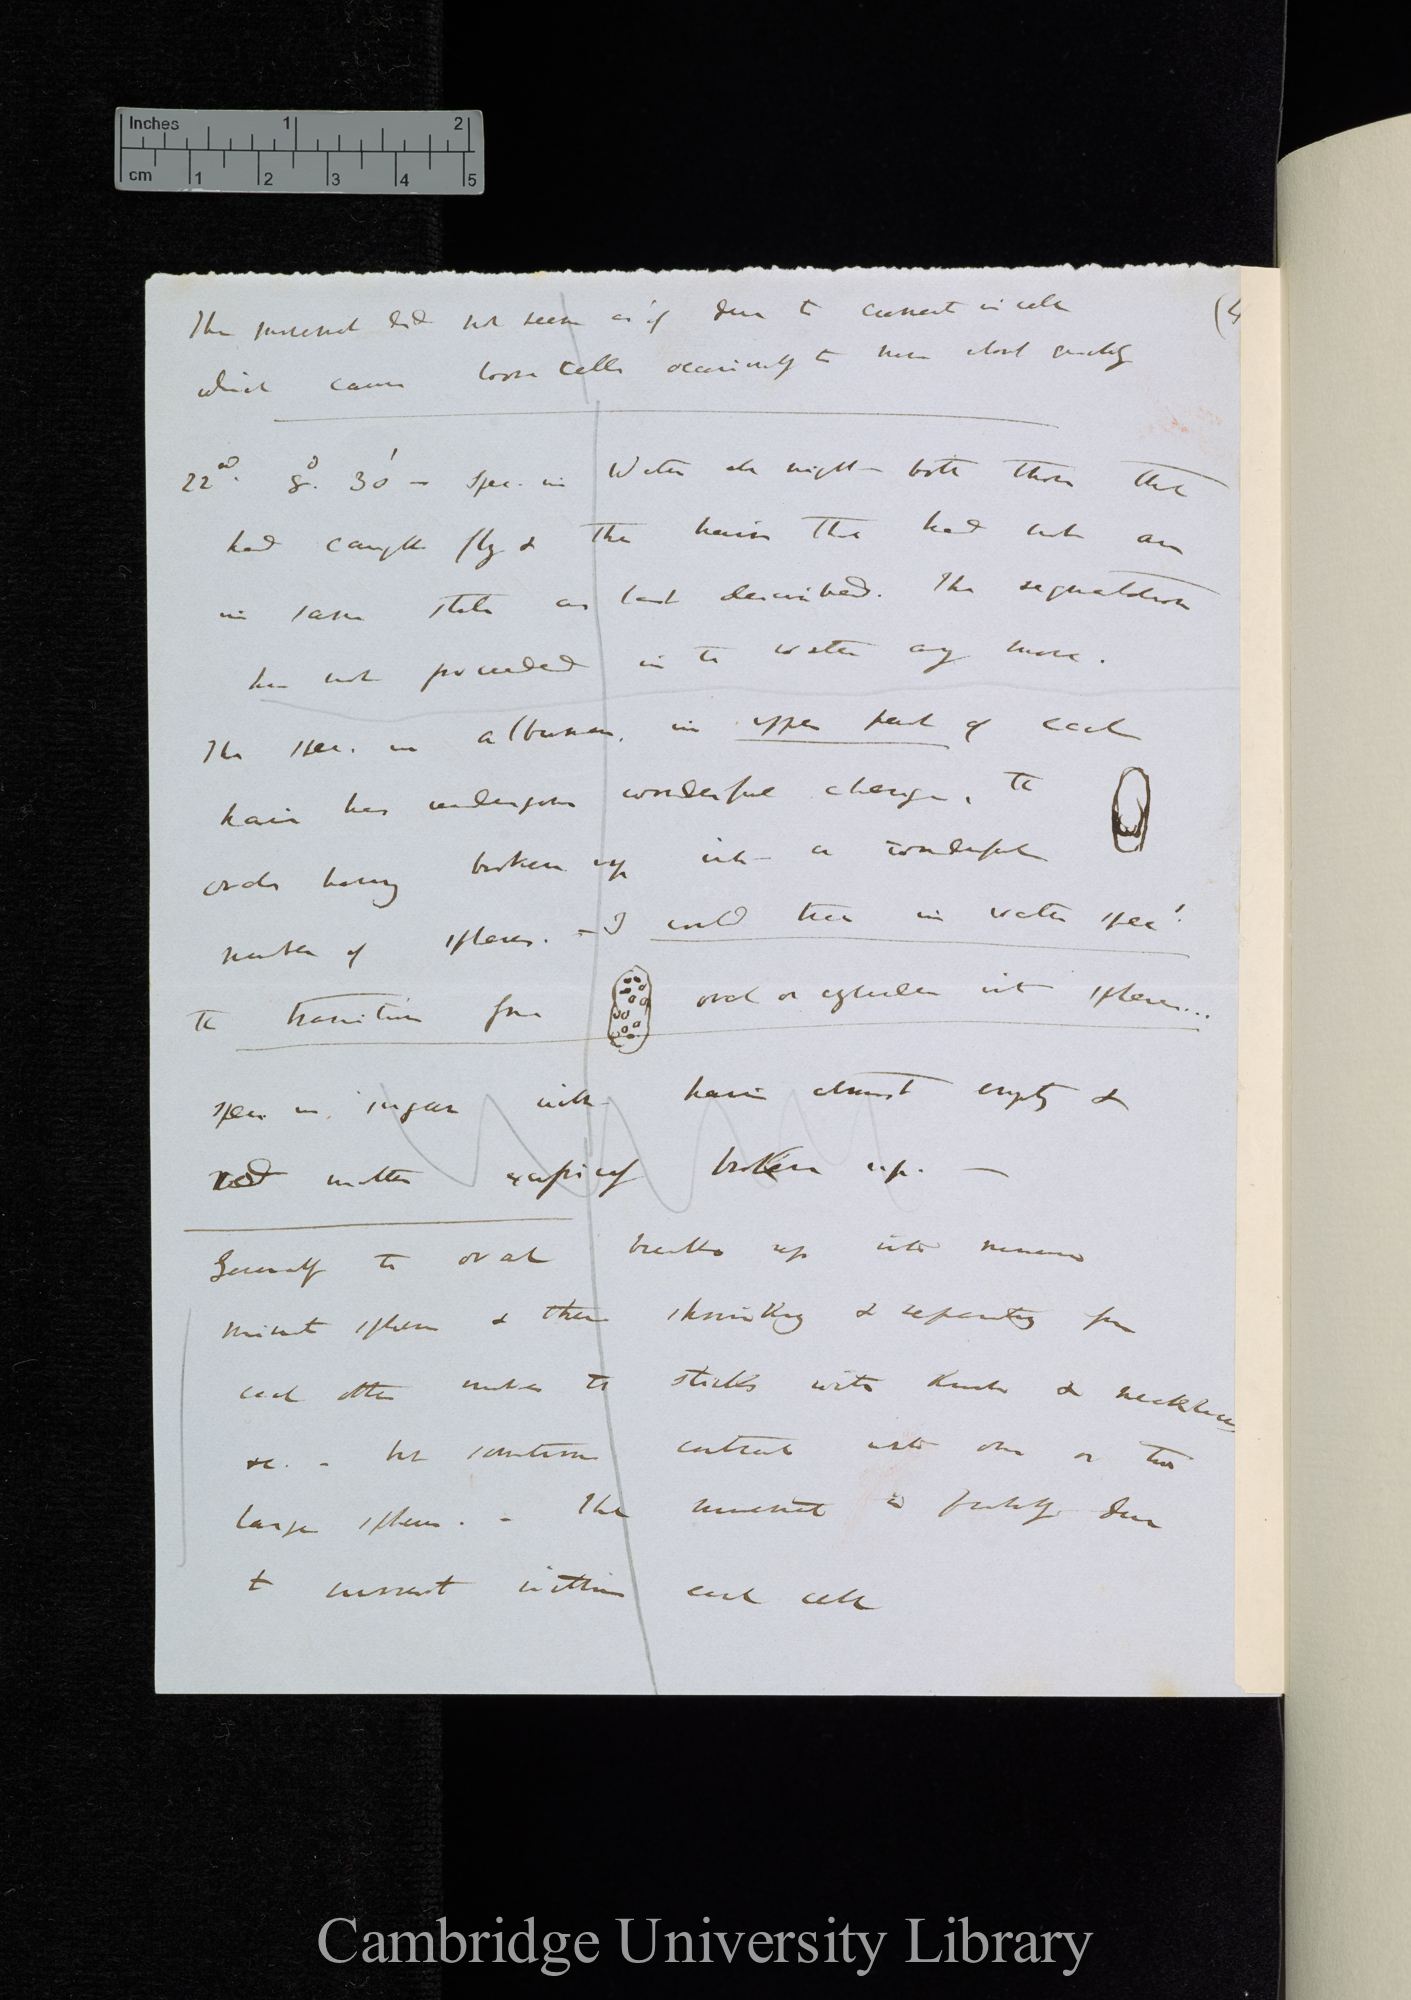 Inches 1 2
cm 1 2 3 4 5
(4
The movement did not seem as if due to current in cell
which cause loose cells occasionally to move about quickly
22nd. 8°. 30' — Spec. in Water all night — both those that
had caught fly & the hairs that had not are
in same state as last described. The segregation
has not proceeded in the water any more.
The spec. in albumen, in upper part of each
hair has undergone wonderful change, the
ovals having broken up into a wonderful
number of spheres. — I could trace in water spec!
the transition from oval or cylinder into spheres...
spec in sugar with hairs almost empty &
red matter broken up. —
Generally the oval breaks up into numerous
minute spheres & these shrinking & separating from
each other makes the sticks with knobs & necklaces
&c. — but sometimes contracts into one or two
large spheres. — The movement is probably due
to current within each cell
Cambridge University Library